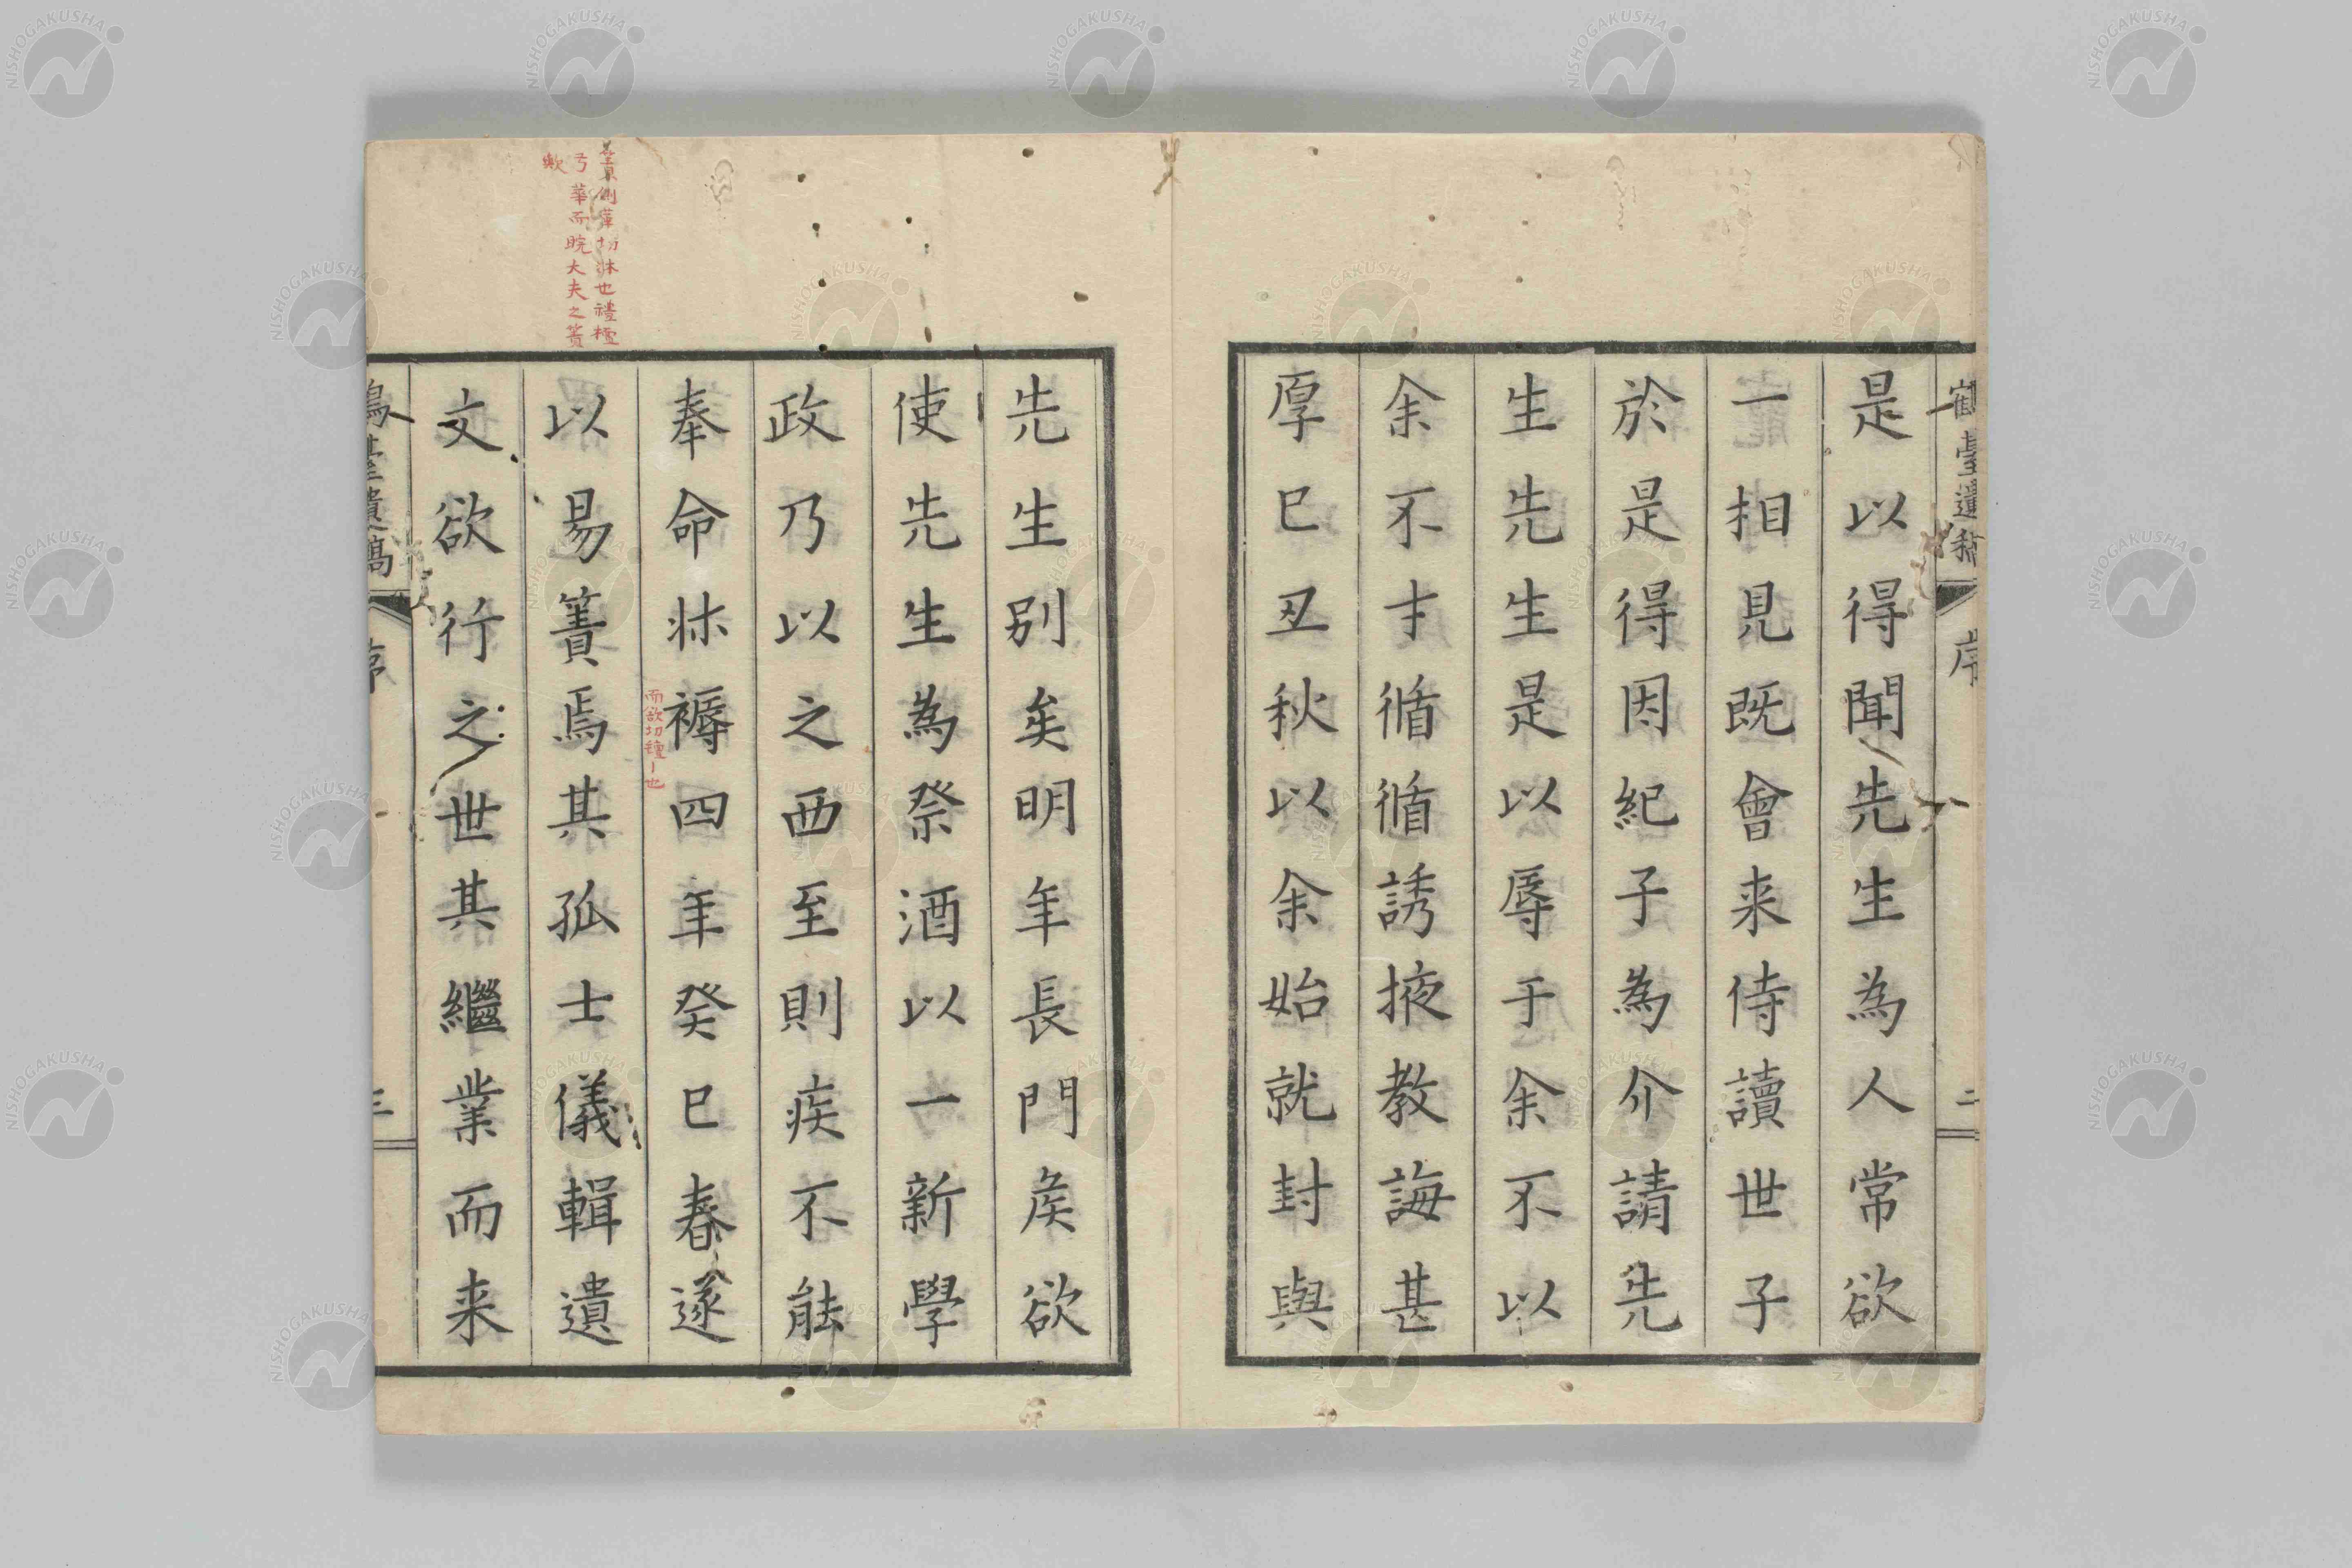 臺遺稿
序
二
是以得聞先生為人常欲
一相見既會来侍讀世子
於是得因紀子為介請先
生先生是以辱于余不以
余不才循循誘掖教誨甚
厚已丑秋以余始就封與
先生別矣明年長門矦欲
使先生為祭酒以一新學
政乃以之西至則疾不能
奉命牀褥四年癸巳春遂
而欲切氊丨也
以易簀焉其孤士儀輯遺
簀側革切牀也禮檀
弓華而睆大夫之簀
歟
文欲行之世其繼業而来
臺遺稿
序
三
NISHOGAKUSHA